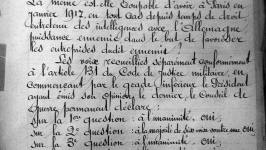 La même est-elle coupable d'avoir à Paris en
janvier 1917, en tout cas depuis temps de droit
entretenu des intelligences avec l'Allemagne
puissance ennemie dans le but de favoriser
les entreprises dudit ennemi ?
Les voix recueillies séparément conformément
à l'article 131 du Code de Justice militaire, en
commençant par le grade inférieur le Président
ayant émis son opinion le dernier, le Conseil de
Guerre permanent déclare :
sur la 1ère question : à l'unanimité, oui ;
sur la 2e question : à la majorité de six voix contre une oui
sur la 3e question : à l'unanimité : oui ;